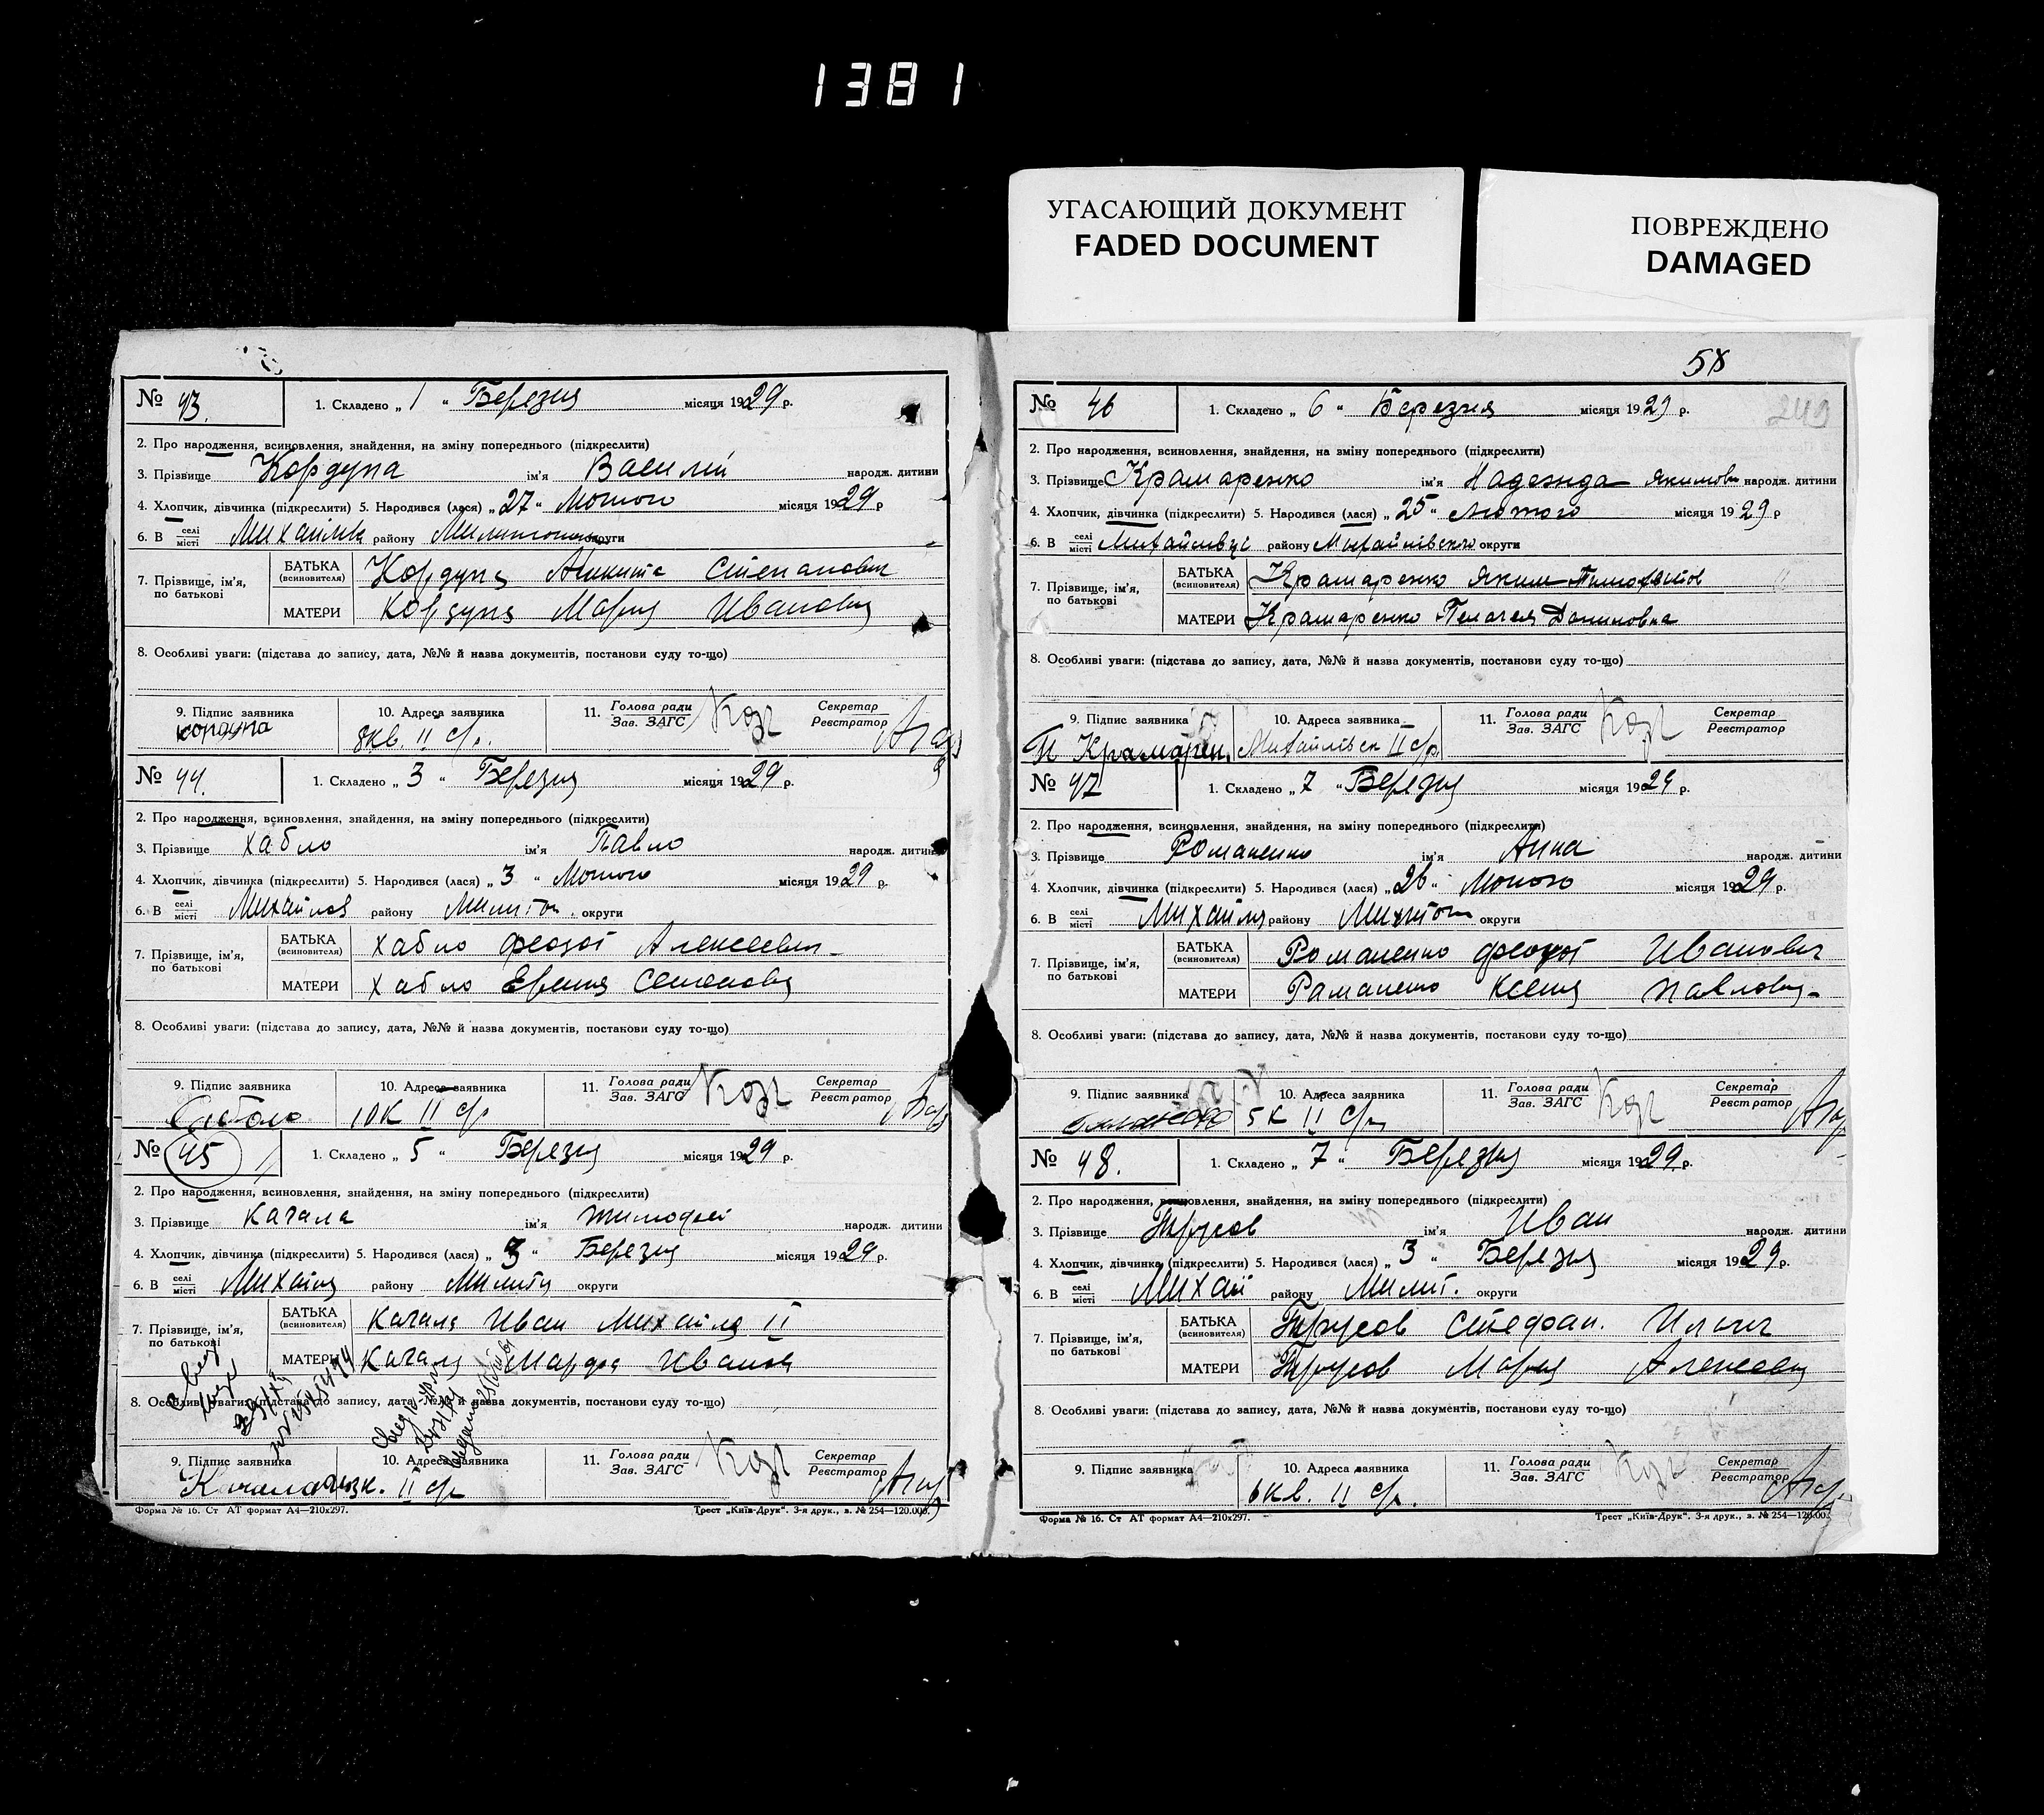 1381
УГАСАЮЩИЙ ДОКУМЕНТ
FADED DOCUMENT
ПОВРЕЖДЕНО
DAMAGED
№ 43. 1. Складено „ 1 “ Березня місяця 1929 р.
2. Про народження, всиновлення, знайдення, на зміну попереднього (підкреслити)
3. Прізвище Кордупа ім'я Василій народж. дитини
4. Хлопчик, дівчинка (підкреслити) 5. Народився (лася) „ 27 “ Лютого місяця 1929 р
6. В селі місті району округи
7. Прізвище, ім'я, по батькові
БАТЬКА (всиновителя) Кордупа Аникита Степанович
МАТЕРИ Кордупа Мария Ивановна
8. Особливі уваги: (підстава до запису, дата, №№ й назва документів, постанови суду то-що)
9. Підпис заявника 10. Адреса заявника 11. Голова ради Зав. ЗАГС Секретар Реєстратор
8кв. II с/р.
№ 44. 1. Складено „ 3 “ Березня місяця 1929 р.
2. Про народження, всиновлення, знайдення, на зміну попереднього (підкреслити)
3. Прізвище Хабло ім'я Павло народж. дитини
4. Хлопчик, дівчинка (підкреслити) 5. Народився (лася) „ 3 “ Лютого місяця 1929 р.
6. В селі місті Михайлов району Милитоп. округи
7. Прізвище, ім'я, по батькові
БАТЬКА (всиновителя) Хабло Феодот Алексеевич
МАТЕРИ Хабло Семеновна
8. Особливі уваги: (підстава до запису, дата, №№ й назва документів, постанови суду то-що)
9. Підпис заявника 10. Адреса заявника 11. Голова ради Зав. ЗАГС Секретар Реєстратор
10К II с/р
№ 45 1. Складено „ 5 “ Березня місяця 1929 р.
2. Про народження, всиновлення, знайдення, на зміну попереднього (підкреслити)
3. Прізвище Качала ім'я Тимофей народж. дитини
4. Хлопчик, дівчинка (підкреслити) 5. Народився (лася) „ 3 “ Березня місяця 1929 р.
6. В селі місті району округи
7. Прізвище, ім'я, по батькові
БАТЬКА (всиновителя) Качала Иван II
МАТЕРИ Качала Марфа Иванов
8. Особливі уваги: (підстава до запису, дата, №№ й назва документів, постанови суду то-що)
9. Підпис заявника 10. Адреса заявника 11. Голова ради Зав. ЗАГС Секретар Реєстратор
II с/р
Форма № 16. Ст АТ формат А4—210х297. Трест „Київ-Друк“. 3-я друк., з. № 254—120.000.
58
249
№ 46 1. Складено „ 6 “ Березня місяця 1929 р.
2. Про народження, всиновлення, знайдення, на зміну попереднього (підкреслити)
3. Прізвище Крамаренко ім'я Надежда Якимовн народж. дитини
4. Хлопчик, дівчинка (підкреслити) 5. Народився (лася) „ 25 “ лютого місяця 1929 р
6. В селі місті Михайлівці району Михайлівсько округи
7. Прізвище, ім'я, по батькові
БАТЬКА (всиновителя) Крамаренко Яким
МАТЕРИ Крамаренко Пелагея Даниловна
8. Особливі уваги: (підстава до запису, дата, №№ й назва документів, постанови суду то-що)
9. Підпис заявника 10. Адреса заявника 11. Голова ради Зав. ЗАГС Секретар Реєстратор
П Крамарен. II с/р.
№ 47 1. Складено „ 7 “ Березня місяця 1929 р.
2. Про народження, всиновлення, знайдення, на зміну попереднього (підкреслити)
3. Прізвище Романенко ім'я Анна народж. дитини
4. Хлопчик, дівчинка (підкреслити) 5. Народився (лася) „ 26 “ Лютого місяця 1929 р.
6. В селі місті району округи
7. Прізвище, ім'я, по батькові
БАТЬКА (всиновителя) Романенко Феодот Иванович
МАТЕРИ Романенко Ксения Павловна
8. Особливі уваги: (підстава до запису, дата, №№ й назва документів, постанови суду то-що)
9. Підпис заявника 10. Адреса заявника 11. Голова ради Зав. ЗАГС Секретар Реєстратор
5К II с/р
№ 48. 1. Складено „ 7 “ Березня місяця 1929 р.
2. Про народження, всиновлення, знайдення, на зміну попереднього (підкреслити)
3. Прізвище Трусов ім'я Иван народж. дитини
4. Хлопчик, дівчинка (підкреслити) 5. Народився (лася) „ 3 “ Березня місяця 1929 р.
6. В селі місті Михай району Милит. округи
7. Прізвище, ім'я, по батькові
БАТЬКА (всиновителя) Трусов Стефан. Ильич
МАТЕРИ Трусов Мария
8. Особливі уваги: (підстава до запису, дата, №№ й назва документів, постанови суду то-що)
9. Підпис заявника 10. Адреса заявника 11. Голова ради Зав. ЗАГС Секретар Реєстратор
6кв. II с/р.
Форма № 16. Ст АТ формат А4—210х297. Трест „Київ-Друк“. 3-я друк., з. № 254—120.00